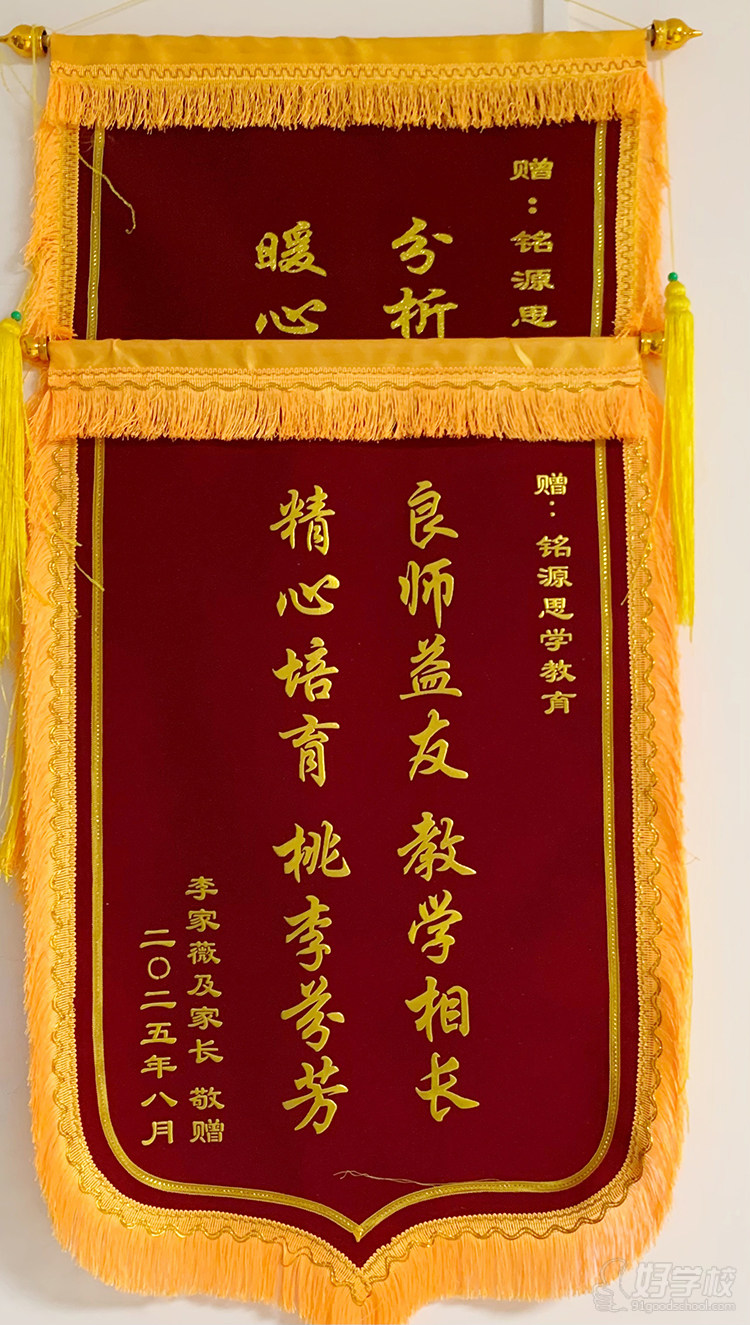 赠：铭源思
分析
暖心
赠：铭源思学教育
良师益友 教学相长
精心培育 桃李芬芳
李家薇及家长 敬赠
二〇二五年八月
好学校
91goodschool.com